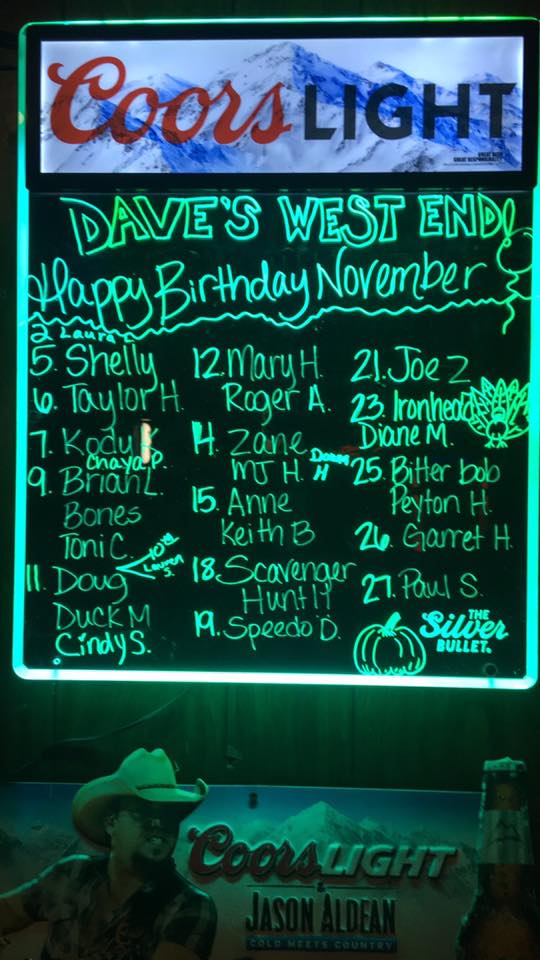 Coors LIGHT
GREAT BEER
GREAT RESPONSIBILITY
DAVE'S WEST END!
Happy Birthday November
2 Laura
5. Shelly
6. Taylor H.
7. Kody K
Chaya P.
9. Brian L.
Bones
Toni C.
10/2
Lauren S.
11. Doug
Duck M
Cindy S.
12. Mary H.
Roger A.
14. Zane
MJ H.
H
15. Anne
Keith B
18. Scavenger
Hunt!!
19. Speedo D.
21. Joe Z
23. Ironhead
Diane M.
25. Bitter bob
Peyton H.
26. Garret H.
27. Paul S.
THE
Silver
BULLET.
Coors LIGHT
&
JASON ALDEAN
COLD MEETS COUNTRY